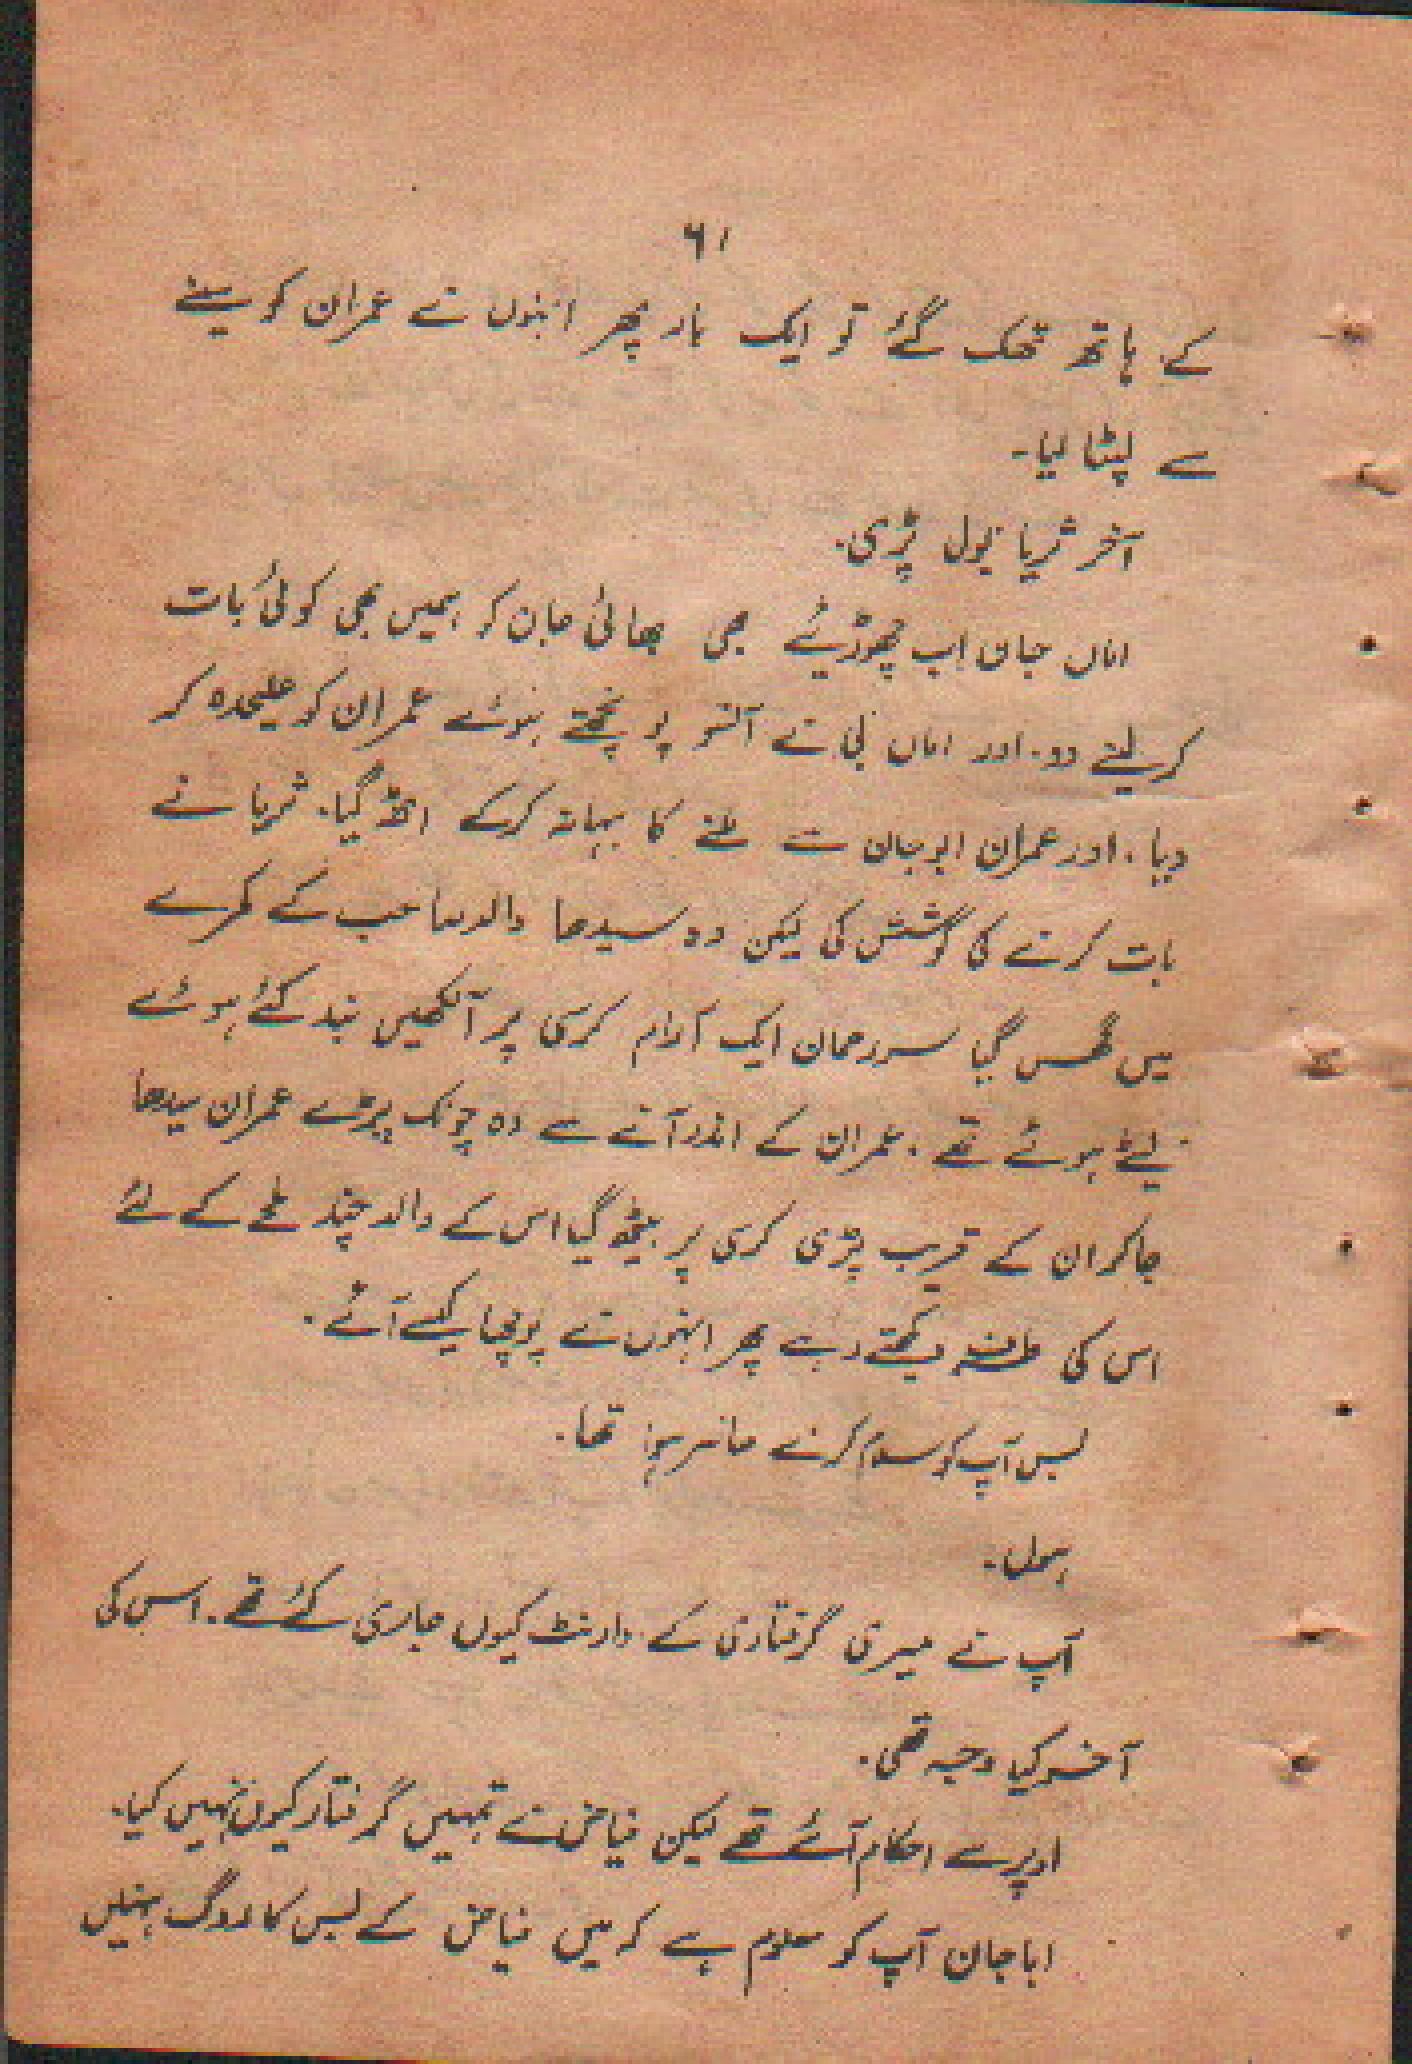 ۶۱
کے ہاتھ تھک گئے تو ایک بار پھر انہوں نے عمران کو سینے
سے لپٹا لیا۔
آخر ثریا بول پڑی۔
اماں جان اب چھوڑیئے بھی بھائی جان کو ہمیں بھی کوئی بات
کر لینے دو۔ اور اماں بی نے آنسو پونچھتے ہوئے عمران کو علیحدہ کر
دیا۔ اور عمران ابو جان سے ملنے کا بہانہ کرکے اٹھ گیا۔ ثریا نے
بات کرنے کی کوشش کی لیکن وہ سیدھا والد صاحب کے کمرے
میں گھس گیا سر رحمان ایک آرام کرسی پر آنکھیں بند کئے ہوئے
لیٹے ہوئے تھے۔ عمران کے اندر آنے سے وہ چونک پڑے عمران سیدھا
جا کر ان کے قریب پڑی کرسی پر بیٹھ گیا اس کے والد چند لمحے کے لئے
اس کی طرف دیکھتے رہے پھر انہوں نے پوچھا کیسے آئے۔
بس آپ کو سلام کرنے حاضر ہوا تھا۔
ہوں۔
آپ نے میری گرفتاری کے وارنٹ کیوں جاری کئے تھے۔ اس کی
آخر کیا وجہ تھی۔
اوپر سے احکام آئے تھے لیکن فیاض نے تمہیں گرفتار کیوں نہیں کیا۔
ابا جان آپ کو معلوم ہے کہ میں فیاض کے بس کا روگ نہیں